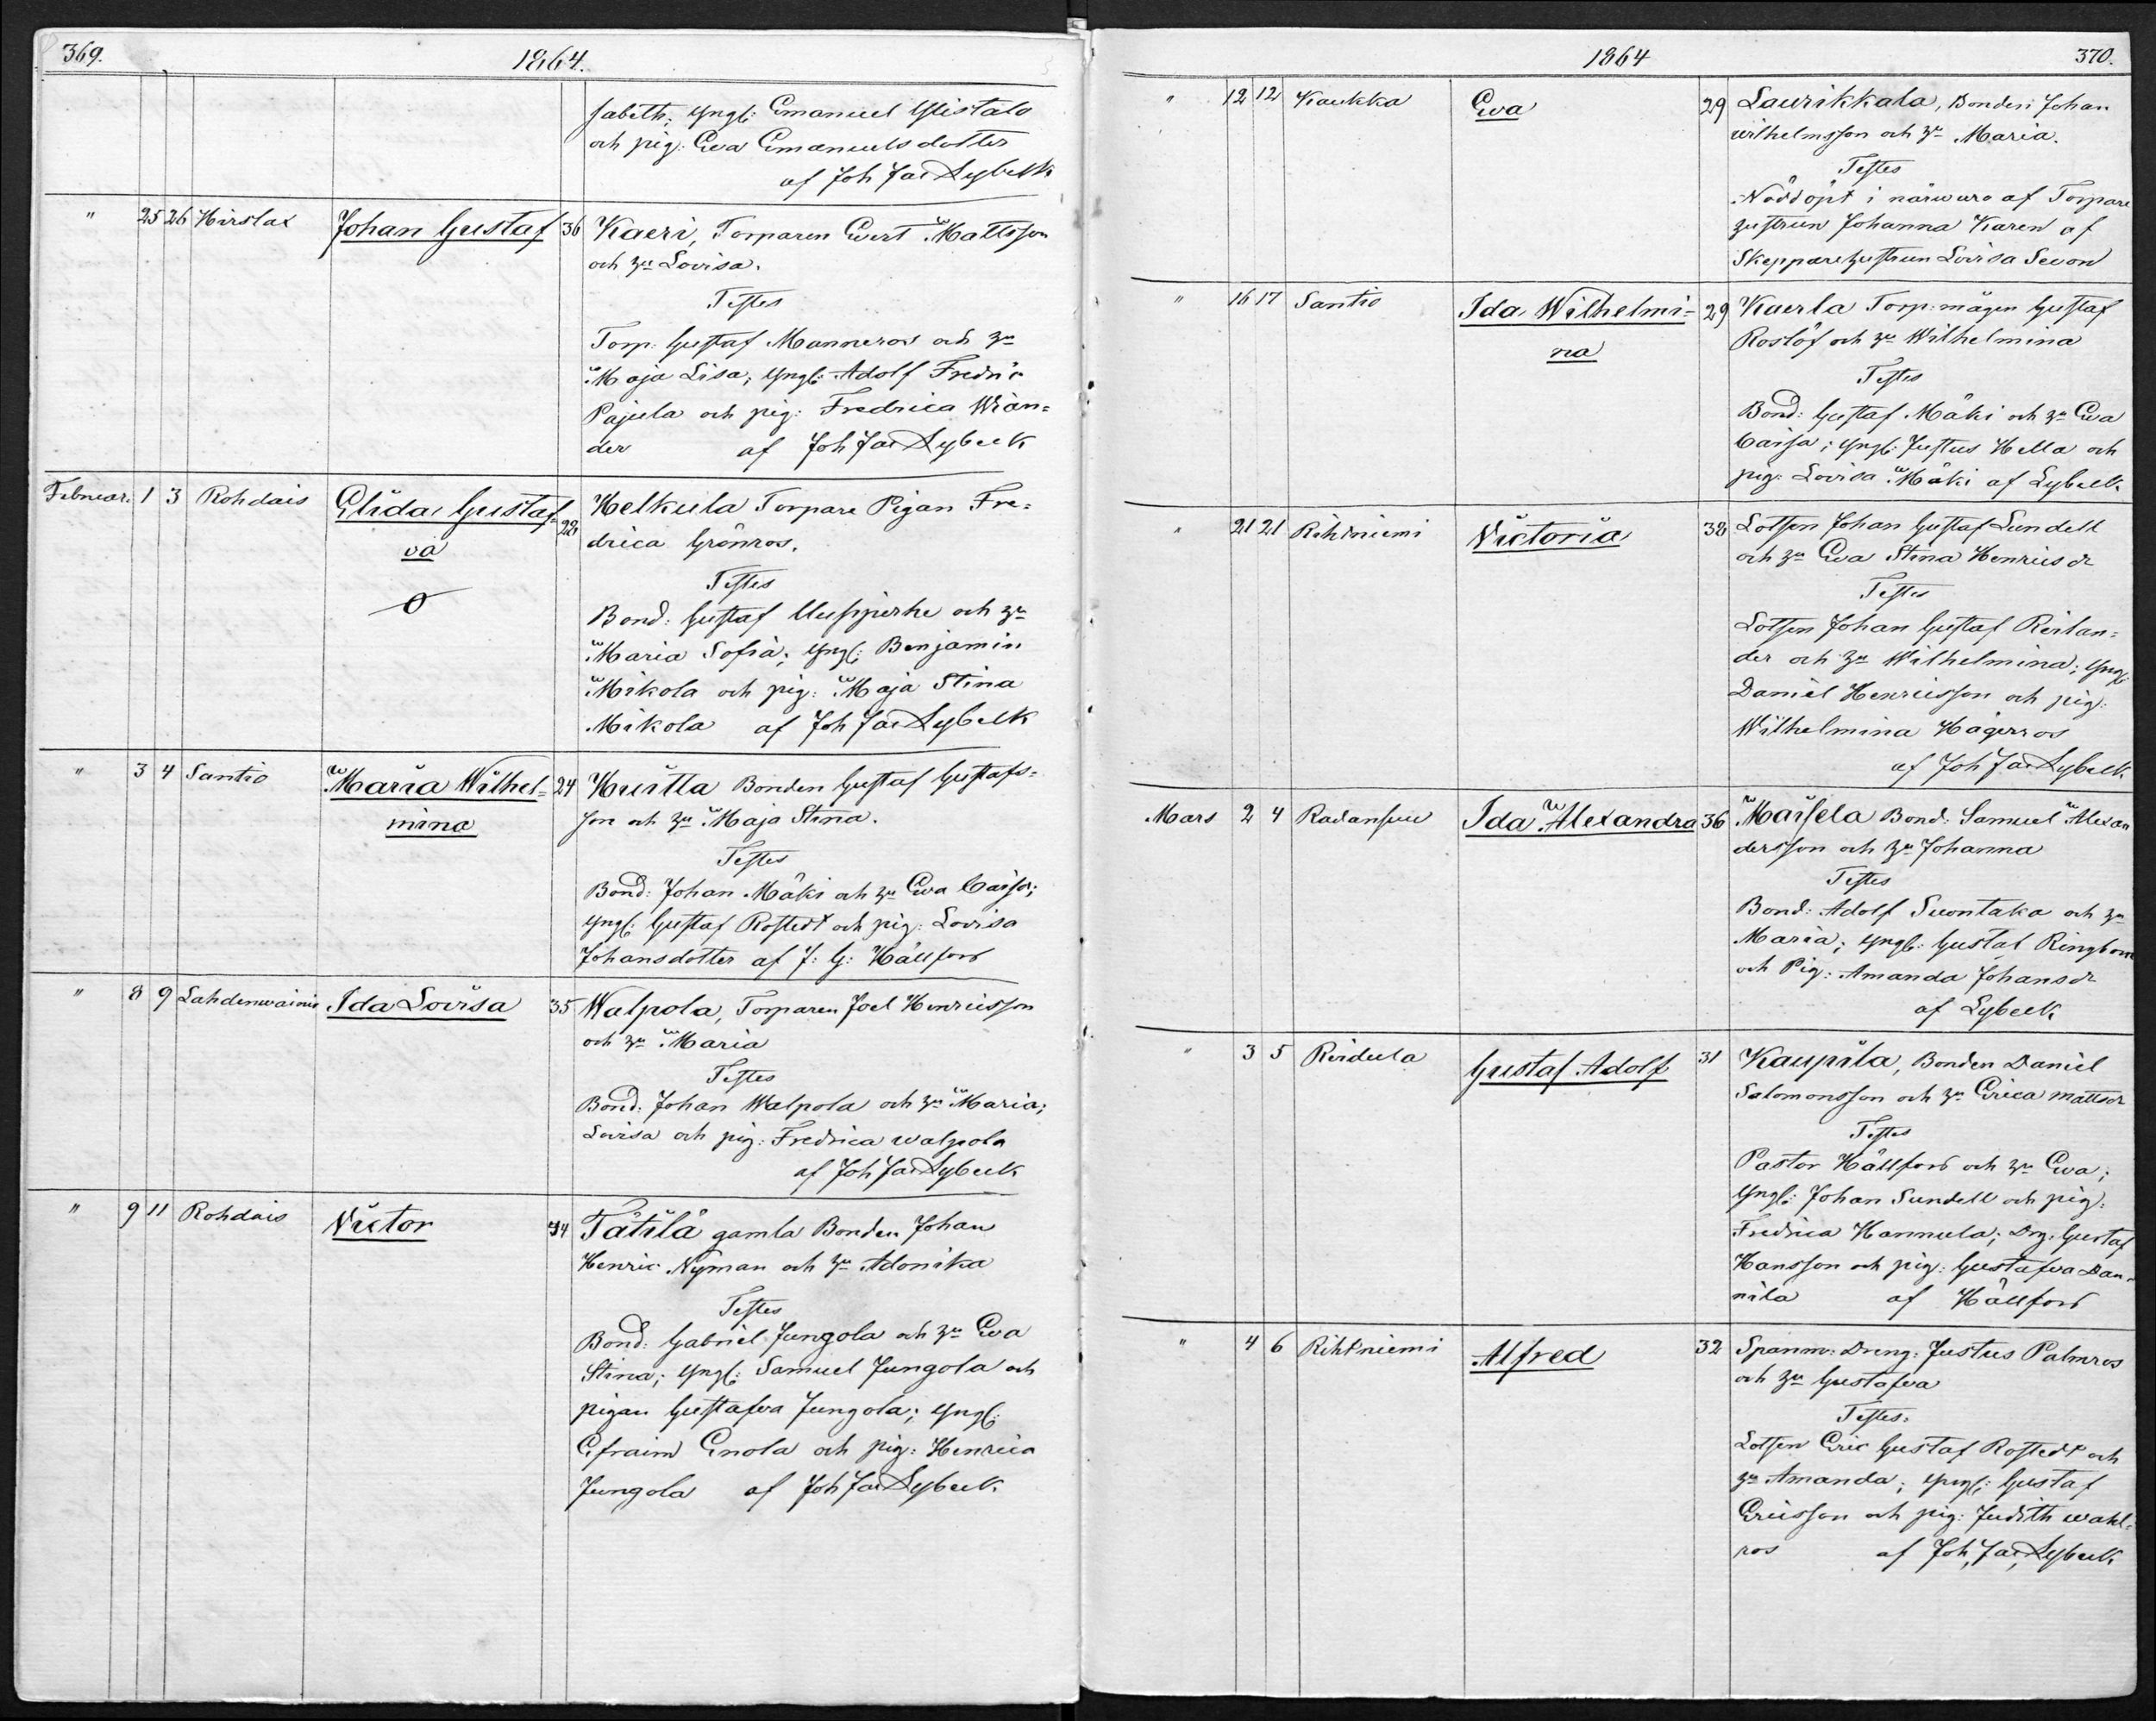 369.
1864.
sabeth; Yngl: Emanuel Ylistalo
och pig: Eva Emanuelsdotter
af Joh Jac Lybeck
" 25 26 Hirslax Johan Gustaf 36 Kaeri, Torparen Evert Mattsson
och hu Lovisa.
Testes
Torp: Gustaf Manneros och hu
Maja Lisa; Yngl: Adolf Fredric
Pajula och pig: Fredrica Wian=
der af Joh Jac Lybeck
Februari 1 3 Rohdais Elida Gustaf= 22 Helkula Torpare Pigan Fre=
va drica Grönros.
Testes
Bond: Gustaf Uusipirhe och hu
Maria Sofia; Yngl: Benjamin
Mikola och pig: Maja Stina
Mikola af Joh Jac Lybeck
" 3 4 Santio Maria Wilhel= 24 Huitta Bonden Gustaf Gustafs=
mina son och hu Maja Stina.
Testes
Bond: Johan Mäki och hu Eva Caisa;
Yngl: Gustaf Rostedt och pig: Lovisa
Johansdotter af J: G: Hällfors
" 8 9 Lahdenwainio Ida Lovisa 35 Walpola, Torparen Joel Henricsson
och hu Maria
Testes
Bond: Johan Walpola och hu Maria;
Lovisa och pig: Fredrica walpola
af Joh Jac Lybeck
" 9 11 Rohdais Victor 44 Tätilä gamla Bonden Johan
Henric Nyman och hu Adonika
Testes
Bond: Gabriel Jungola och hu Eva
Stina; Yngl: Samuel Jungola och
pigan Gustafva Jungola; Yngl:
Efraim Enola och pig: Henrica
Jungola af Joh Jac Lybeck.
1864
370.
" 12 12 Kaukka Eva 29 Laurikkala, Bonden Johan
wilhelmsson och hu Maria.
Testes
Nöddöpt i närwaro af Torpare
hustrun Johanna Karen af
Skepparehustrun Lovisa Sevon
" 16 17 Santio Ida Wilhelmi= 29 Kaerla Torp: mågen Gustaf
na Roslöf och hu Wilhelmina
Testes
Bond: Gustaf Mäki och hu Eva
Caisa; Yngl: Justus Hella och
pig: Lovisa Mäki af Lybeck.
" 21 21 Rihtniemi Victoria 38 Lotsen Johan Gustaf Lundell
och hu Eva Stina Henricsdr
Testes
Lotsen Johan Gustaf Reilan=
der och hu Wilhelmina; Yngl:
Daniel Henricsson och pig:
Wilhelmina Hägerros
af Joh Jac Lybeck.
Mars 2 4 Radansuu Ida Alexandra 36 Maisela Bond: Samuel Alexan
dersson och hu Johanna
Testes
Bond: Adolf Suontaka och hu
Maria; Yngl: Gustaf Ringbom
och Pig: Amanda Johansdr
af Lybeck
" 3 5 Reidula Gustaf Adolf 31 Kaupila, Bonden Daniel
Salomonsson och hu Erica Mattsdr
Testes
Pastor Hällfors och hu Eva;
Yngl: Johan Sundell och pig:
Fredrica Hannula; Drg. Gustaf
Hansson och pig: Gustafva Dan=
nila af Hällfors
" 4 6 Rihtniemi Alfred 32 Spanm: Dreng: Justus Palmros
och hu Gustafva
Testes:
Lotsen Eric Gustaf Rostedt och
hu Amanda; Yngl: Gustaf
Ericsson och pig: Judith wahl=
ros af Joh, Jac, Lybeck